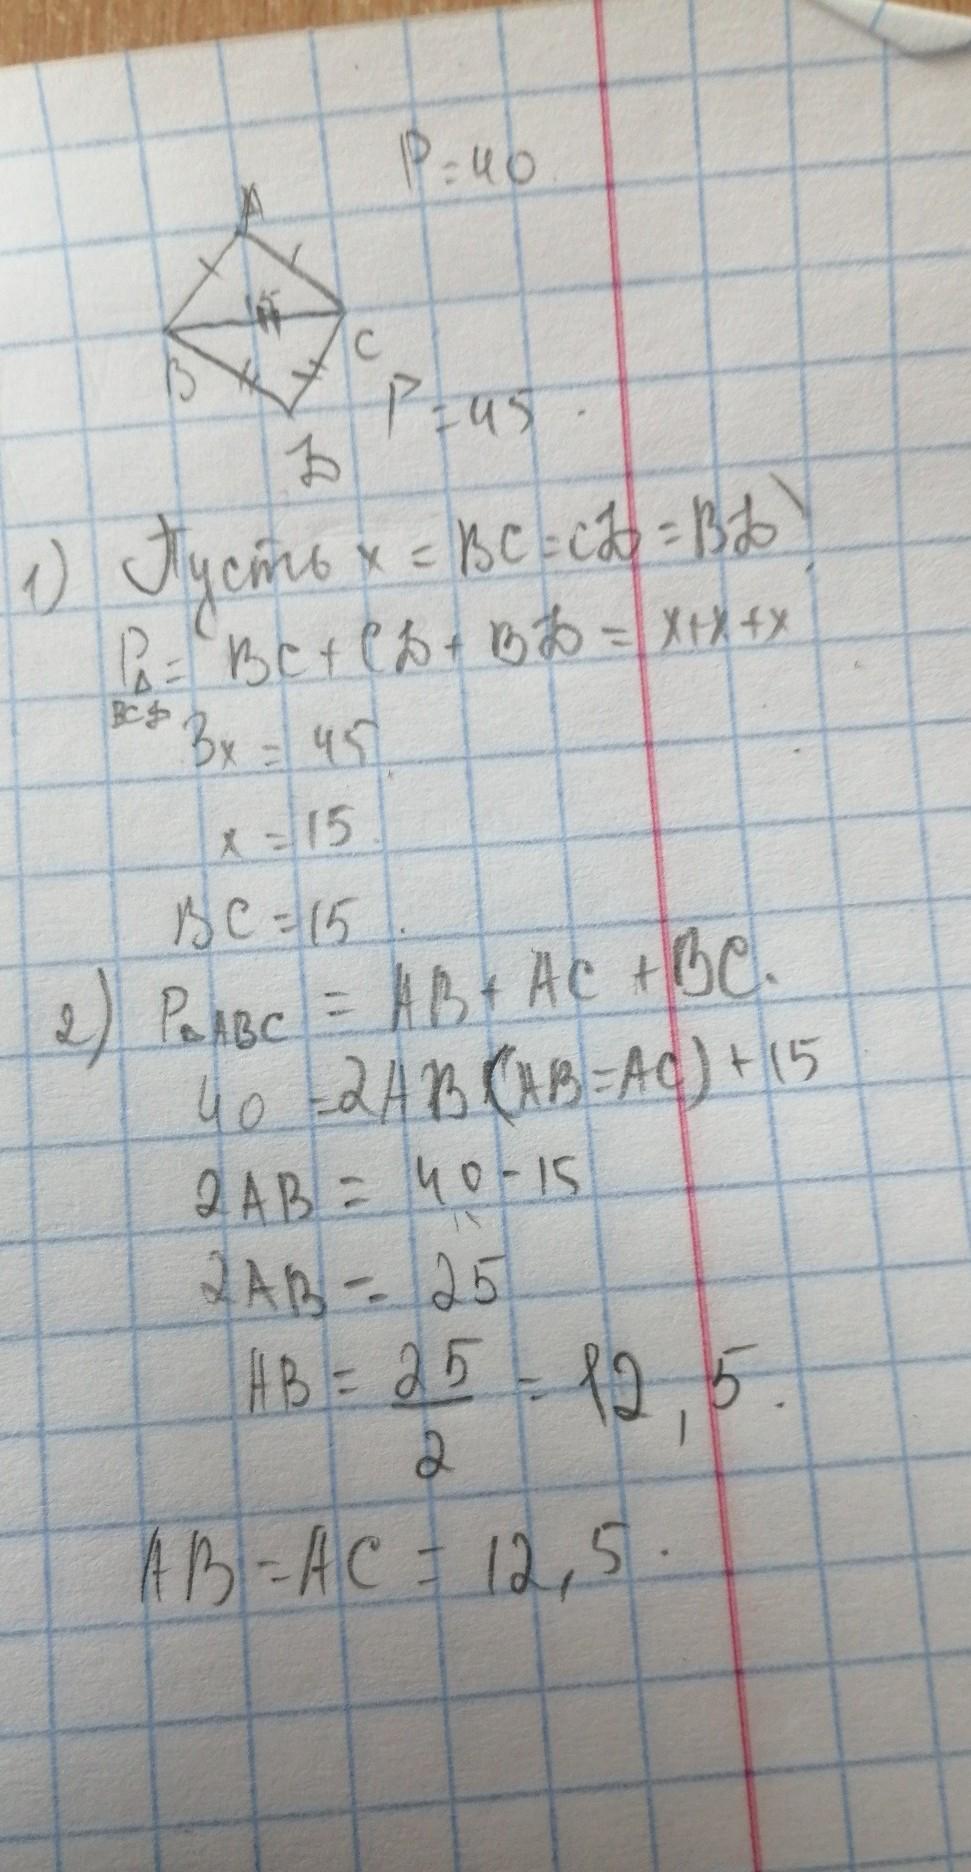 P=40
A
B
C
P=45.
D
1) Пусть x = BC = CD = BD
P△BCD = BC + CD + BD = x+x+x
3x = 45
x = 15
BC = 15.
2) P△ABC = AB + AC + BC.
40 = 2AB (AB=AC) + 15
2AB = 40 - 15
2AB = 25
AB = 25/2 = 12,5.
AB = AC = 12,5.